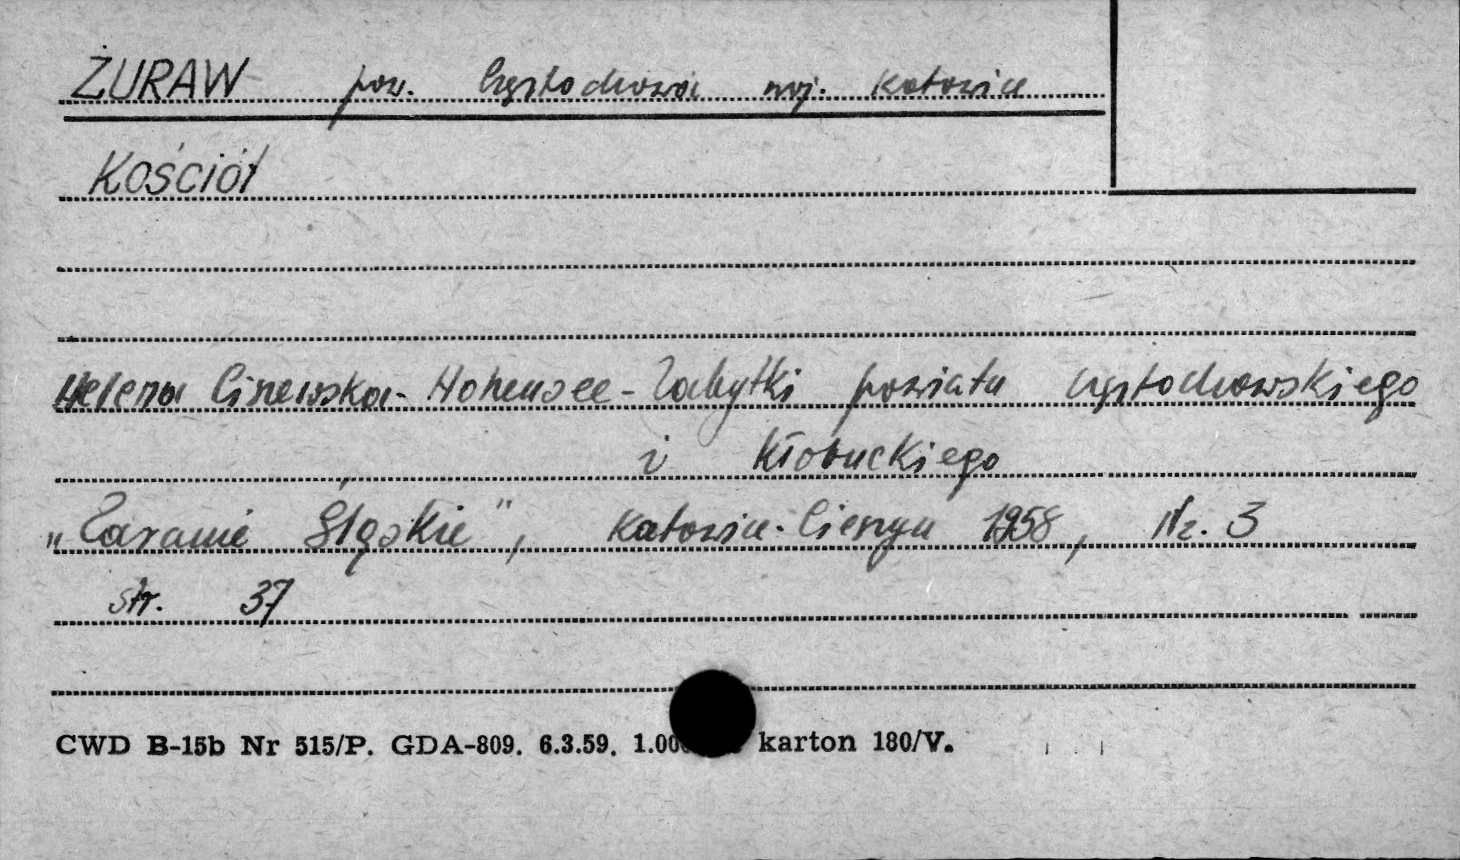 ŻURAW pow. Częstochowa woj. Katowice
KOŚCIÓŁ
Helena Cinewska-Hohensee - Zabytki powiatu częstochowskiego
i Kłobuckiego
"Zaranie Śląskie", Katowice-Cieszyn 1958, Nr. 3
str. 37
CWD B-15b Nr 515/P. GDA-809. 6.3.59. karton 180/V.